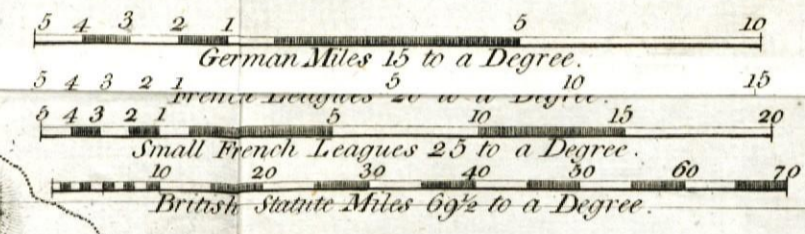 5 4 3 2 1 5 10
German Miles 15 to a Degree.
5 4 3 2 1 5 10 15
French Leagues 20 to a Degree.
5 4 3 2 1 5 10 15 20
Small French Leagues 25 to a Degree.
10 20 30 40 50 60 70
British Statute Miles 69½ to a Degree.